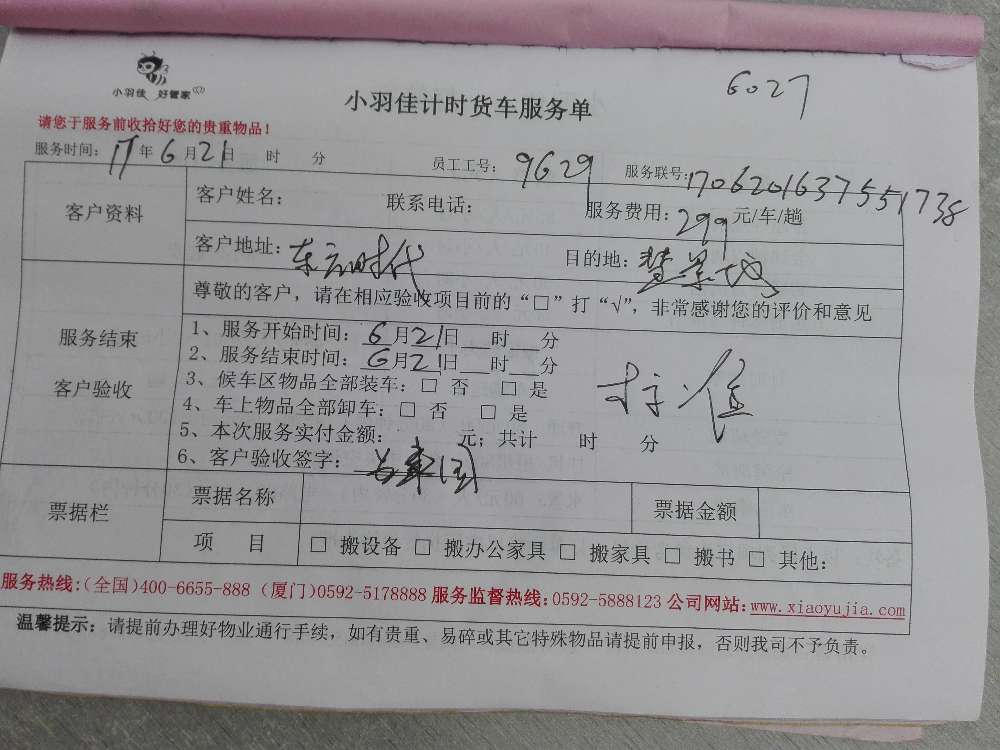 小羽佳 好管家
6027
小羽佳计时货车服务单
请您于服务前收拾好您的贵重物品！
服务时间：17年6月21日 时 分 员工工号：9629 服务联号：1706201637551738
客户资料
客户姓名： 联系电话： 服务费用：299元/车/趟
客户地址：东方时代 目的地：
服务结束
客户验收
尊敬的客户，请在相应验收项目前的“□”打“√”，非常感谢您的评价和意见
1、服务开始时间：6月21日__时__分
2、服务结束时间：6月21日__时__分
3、候车区物品全部装车：□ 否 □ 是
4、车上物品全部卸车：□ 否 □ 是
5、本次服务实付金额： 元；共计 时 分
6、客户验收签字：
票据栏
票据名称 票据金额
项 目 □ 搬设备 □ 搬办公家具 □ 搬家具 □ 搬书 □ 其他：
服务热线：（全国）400-6655-888 （厦门）0592-5178888 服务监督热线：0592-5888123 公司网站：www.xiaoyujia.com
温馨提示：请提前办理好物业通行手续，如有贵重、易碎或其它特殊物品请提前申报，否则我司不予负责。